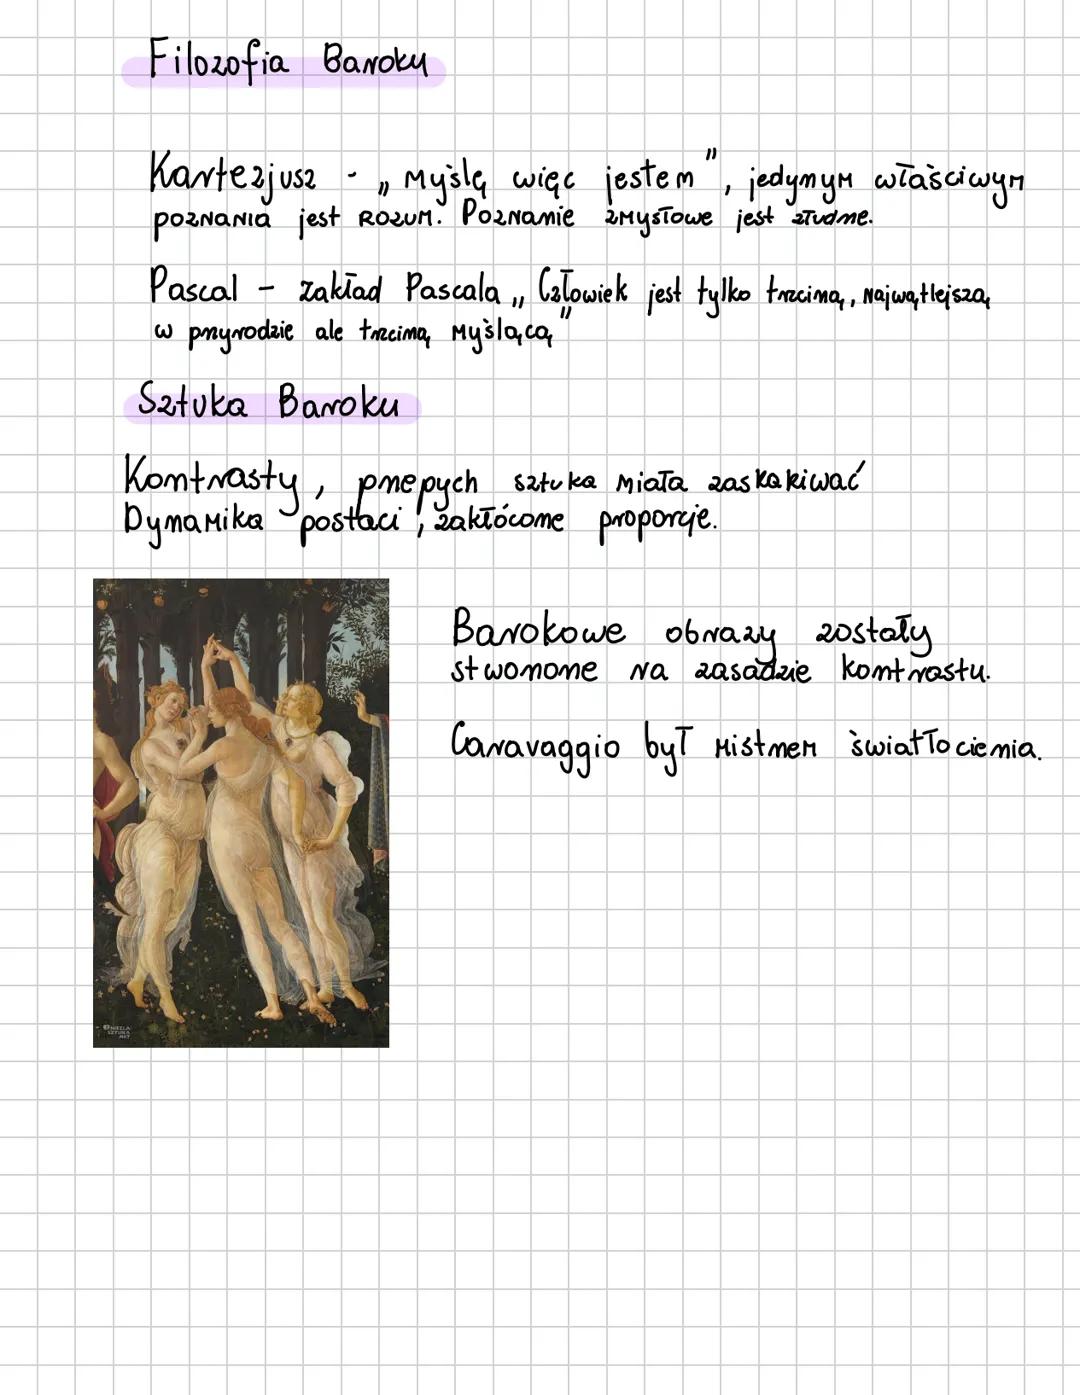 Filozofia Baroku
Kartezjusz - „Myślę więc jestem", jedynym właściwym
poznania jest rozum. Poznanie zmysłowe jest złudne.
Pascal - zakład Pascala „Człowiek jest tylko trzciną, najwątlejszą
w przyrodzie ale trzciną myślącą"
Sztuka Baroku
Kontrasty, przepych sztuka miała zaskakiwać
Dynamika postaci, zakłócone proporcje.
Barokowe obrazy zostały
stworzone na zasadzie kontrastu.
Caravaggio był mistrzem światłocienia.
©NIEZLA
SZTUKA
.NET